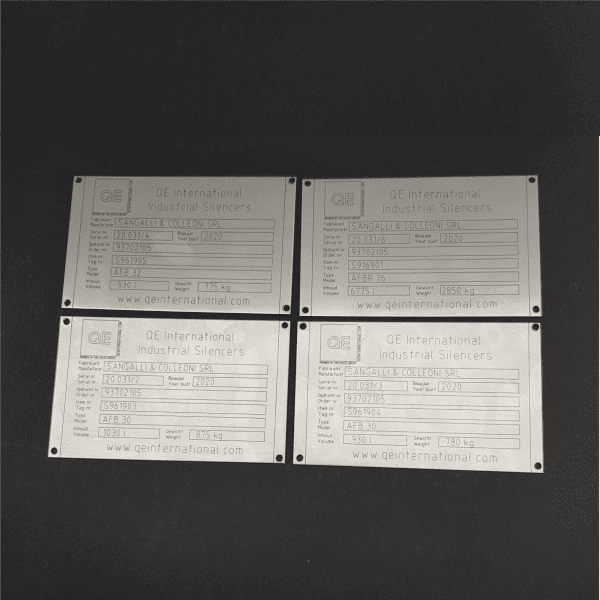 QE
QE International
Industrial Silencers
MEMBER OF THE
Fabrikant
Manufacturer
SANGALLI & COLLEONI SRL
Serie nr
Serial nr
20.031/4
Bouwjaar
Year built
2020
Opdracht nr
Order nr
93702105
Item nr
Tag nr
S961905
Type
Model
AFB 32
Inhoud
Volume
930 l
Gewicht
Weight
775 kg
www.qeinternational.com
QE
QE International
Industrial Silencers
MEMBER OF THE
Fabrikant
Manufacturer
SANGALLI & COLLEONI SRL
Serie nr
Serial nr
20.031/6
Bouwjaar
Year built
2020
Opdracht nr
Order nr
93702105
Item nr
Tag nr
S916901
Type
Model
AFBR 76
Inhoud
Volume
6775 l
Gewicht
Weight
2850 kg
www.qeinternational.com
QE
QE International
Industrial Silencers
MEMBER OF THE
Fabrikant
Manufacturer
SANGALLI & COLLEONI SRL
Serie nr
Serial nr
20.031/2
Bouwjaar
Year built
2020
Opdracht nr
Order nr
93702105
Item nr
Tag nr
S961903
Type
Model
AFB 30
Inhoud
Volume
1030 l
Gewicht
Weight
875 kg
www.qeinternational.com
QE
QE International
Industrial Silencers
MEMBER OF THE
Fabrikant
Manufacturer
SANGALLI & COLLEONI SRL
Serie nr
Serial nr
20.031/3
Bouwjaar
Year built
2020
Opdracht nr
Order nr
93702105
Item nr
Tag nr
S961904
Type
Model
AFB 30
Inhoud
Volume
930 l
Gewicht
Weight
780 kg
www.qeinternational.com